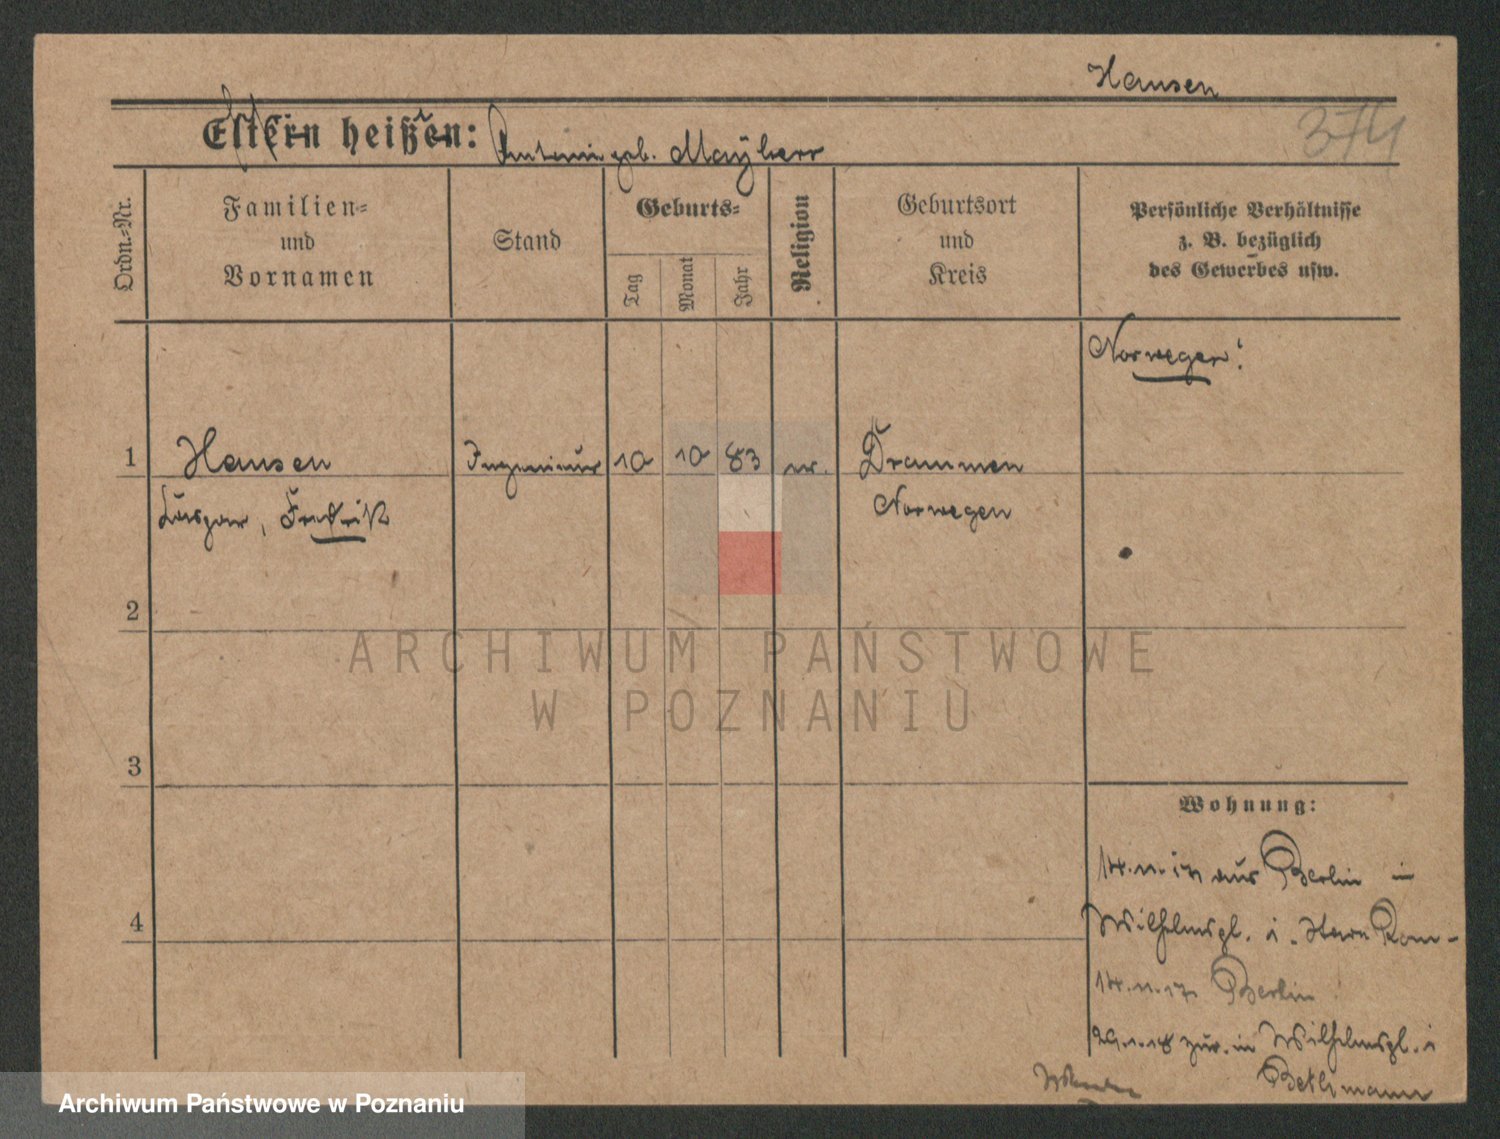 Hansen
374
Eltern heißen: geb. Mayherr
Ordn.-Nr.
Familien-
und
Vornamen
Stand
Geburts-
Tag
Monat
Jahr
Religion
Geburtsort
und
Kreis
Persönliche Verhältnisse
z. B. bezüglich
des Gewerbes usw.
Norweger!
1 Hansen Ingenieur 10 10 83 Drammen
Fredrik Norwegen
2
3
Wohnung:
aus Berlin in
Wilhelmspl.
4
Berlin
zur. in Wilhelmspl.
Bethmann
ARCHIWUM PAŃSTWOWE
W POZNANIU
Archiwum Państwowe w Poznaniu